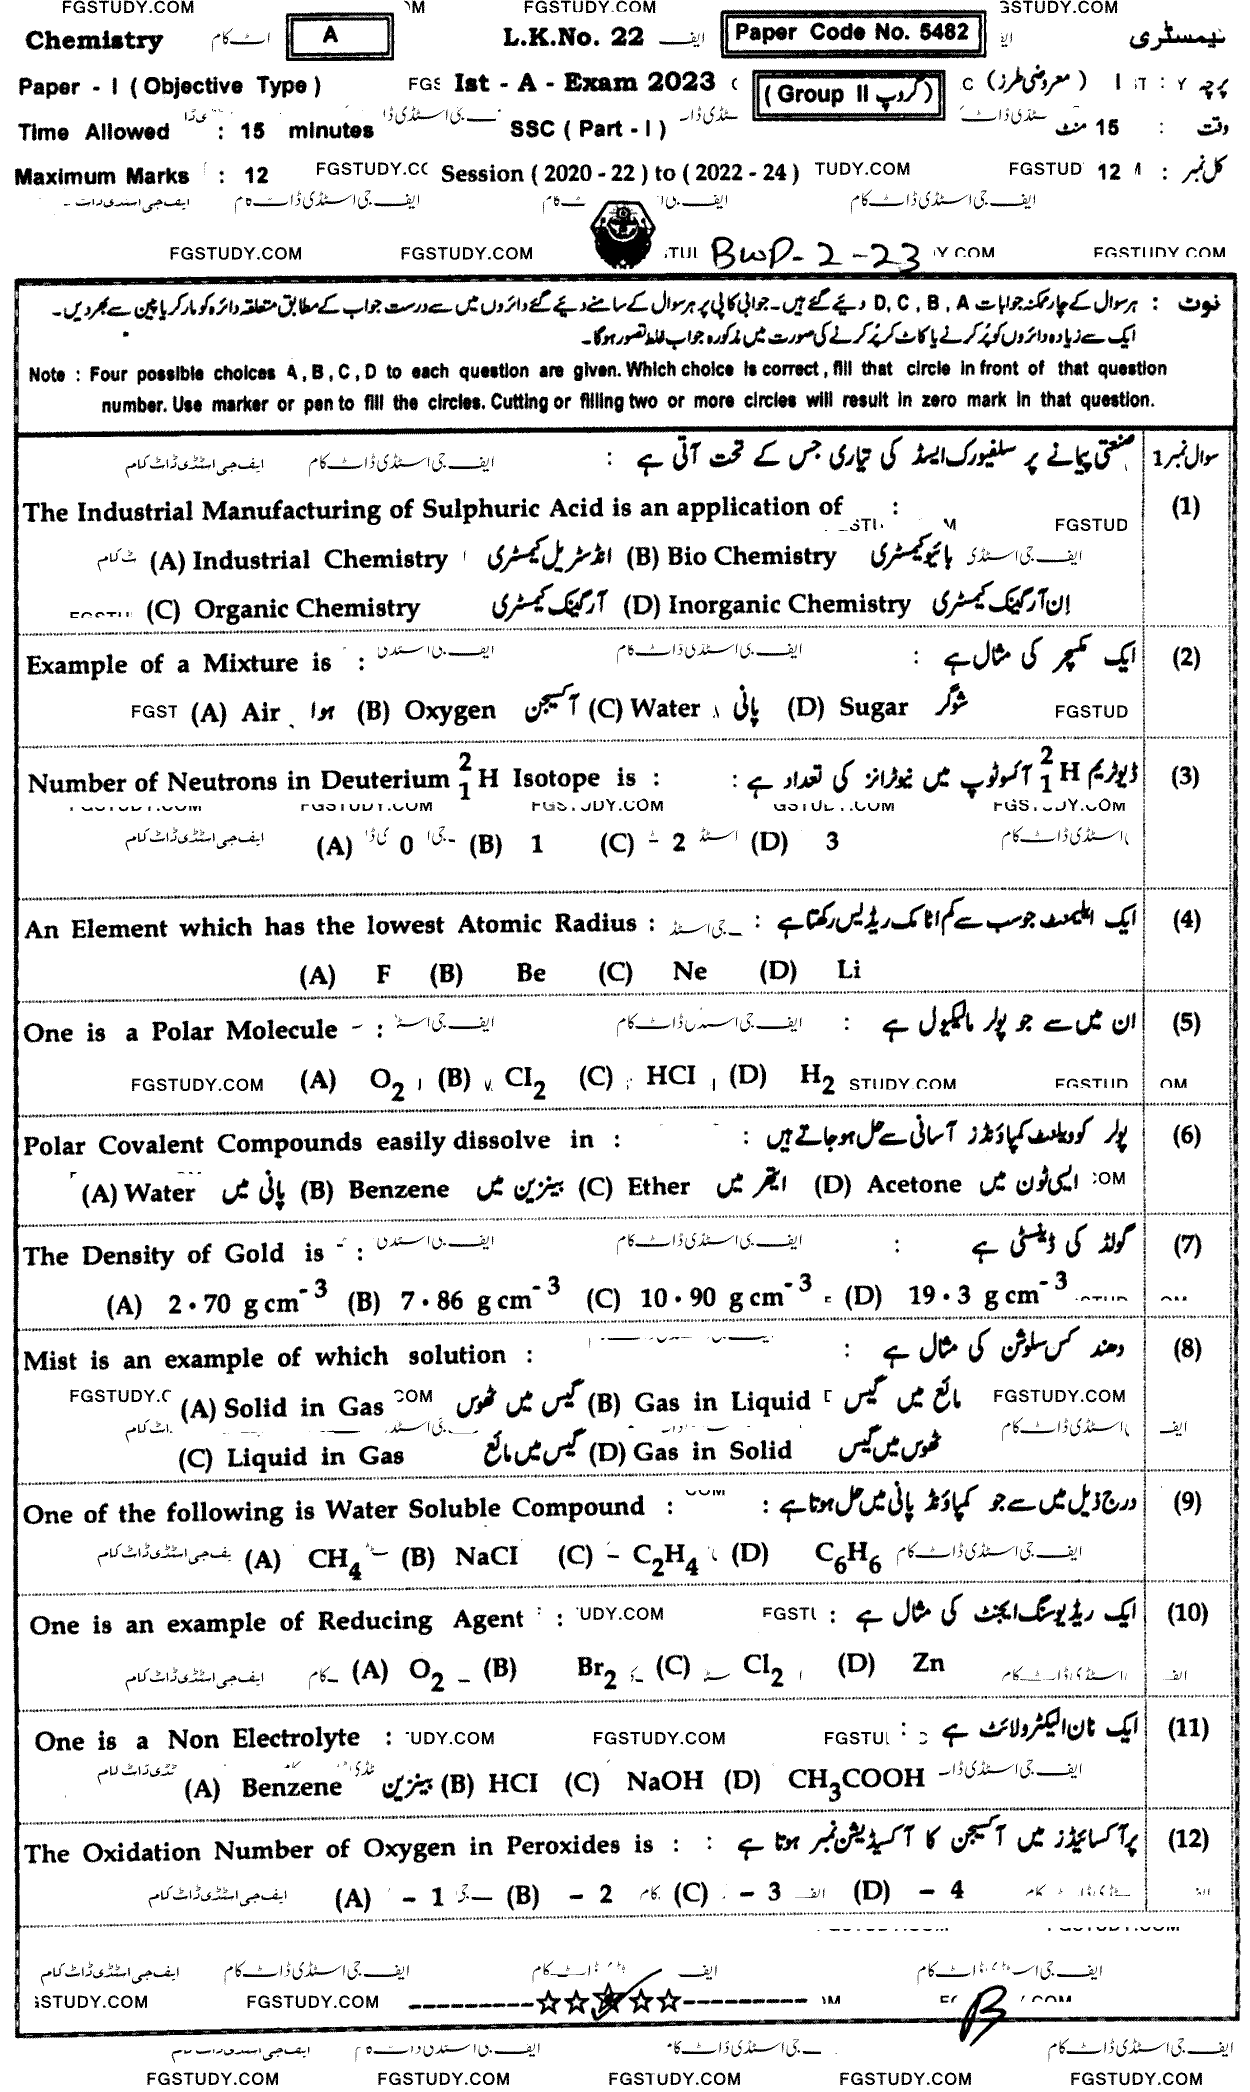 FGSTUDY.COM FGSTUDY.COM
Chemistry A L.K.No. 22 Paper Code No. 5482
Paper - I ( Objective Type ) Ist - A - Exam 2023 (Group II گروپ) پرچہ : I ( معروضی طرز )
Time Allowed : 15 minutes SSC ( Part - I ) وقت : 15 منٹ
Maximum Marks : 12 Session ( 2020 - 22 ) to ( 2022 - 24 ) کل نمبر : 12
ایف جی اسٹڈی ڈاٹ کام ایف جی اسٹڈی ڈاٹ کام
FGSTUDY.COM FGSTUDY.COM BWP-2-23 FGSTUDY.COM
نوٹ : ہر سوال کے چار ممکنہ جوابات D, C, B, A دیئے گئے ہیں۔ جوابی کاپی پر ہر سوال کے سامنے دیئے گئے دائروں میں سے درست جواب کے مطابق متعلقہ دائرہ کو مارکر یا پین سے بھر دیں۔
ایک سے زیادہ دائروں کو پُر کرنے یا کاٹ کر پُر کرنے کی صورت میں مذکورہ جواب غلط تصور ہوگا۔
Note : Four possible choices A, B, C, D to each question are given. Which choice is correct, fill that circle in front of that question
number. Use marker or pen to fill the circles. Cutting or filling two or more circles will result in zero mark in that question.
سوال نمبر 1 صنعتی پیمانے پر سلفیورک ایسڈ کی تیاری جس کے تحت آتی ہے :
The Industrial Manufacturing of Sulphuric Acid is an application of : (1)
(A) Industrial Chemistry انڈسٹریل کیمسٹری (B) Bio Chemistry بائیو کیمسٹری
(C) Organic Chemistry آرگینک کیمسٹری (D) Inorganic Chemistry ان آرگینک کیمسٹری
Example of a Mixture is : ایک مکسچر کی مثال ہے : (2)
(A) Air ہوا (B) Oxygen آکسیجن (C) Water پانی (D) Sugar شوگر
Number of Neutrons in Deuterium ²₁H Isotope is : ڈیوٹریم ²₁H آئسوٹوپ میں نیوٹرانز کی تعداد ہے : (3)
(A) 0 (B) 1 (C) 2 (D) 3
An Element which has the lowest Atomic Radius : ایک ایلیمنٹ جو سب سے کم اٹامک ریڈیس رکھتا ہے : (4)
(A) F (B) Be (C) Ne (D) Li
One is a Polar Molecule : ان میں سے جو پولر مالیکیول ہے : (5)
FGSTUDY.COM (A) O₂ (B) Cl₂ (C) HCl (D) H₂
Polar Covalent Compounds easily dissolve in : پولر کوویلنٹ کمپاؤنڈز آسانی سے حل ہو جاتے ہیں : (6)
(A) Water پانی میں (B) Benzene بینزین میں (C) Ether ایتھر میں (D) Acetone ایسی ٹون میں
The Density of Gold is : گولڈ کی ڈینسٹی ہے : (7)
(A) 2·70 g cm⁻³ (B) 7·86 g cm⁻³ (C) 10·90 g cm⁻³ (D) 19·3 g cm⁻³
Mist is an example of which solution : دھند کس سلوشن کی مثال ہے : (8)
(A) Solid in Gas گیس میں ٹھوس (B) Gas in Liquid مائع میں گیس FGSTUDY.COM
(C) Liquid in Gas گیس میں مائع (D) Gas in Solid ٹھوس میں گیس
One of the following is Water Soluble Compound : درج ذیل میں سے جو کمپاؤنڈ پانی میں حل ہوتا ہے : (9)
(A) CH₄ (B) NaCl (C) C₂H₄ (D) C₆H₆ ایف جی اسٹڈی ڈاٹ کام
One is an example of Reducing Agent : ایک ریڈیوسنگ ایجنٹ کی مثال ہے : (10)
ایف جی اسٹڈی ڈاٹ کام (A) O₂ (B) Br₂ (C) Cl₂ (D) Zn
One is a Non Electrolyte : FGSTUDY.COM ایک نان الیکٹرولائٹ ہے : (11)
(A) Benzene بینزین (B) HCl (C) NaOH (D) CH₃COOH
The Oxidation Number of Oxygen in Peroxides is : پر آکسائیڈز میں آکسیجن کا آکسیڈیشن نمبر ہوتا ہے : (12)
ایف جی اسٹڈی ڈاٹ کام (A) - 1 (B) - 2 (C) - 3 (D) - 4
ایف جی اسٹڈی ڈاٹ کام ایف جی اسٹڈی ڈاٹ کام
FGSTUDY.COM ----------☆☆☆☆☆---------- B
FGSTUDY.COM FGSTUDY.COM FGSTUDY.COM FGSTUDY.COM FGSTUDY.COM